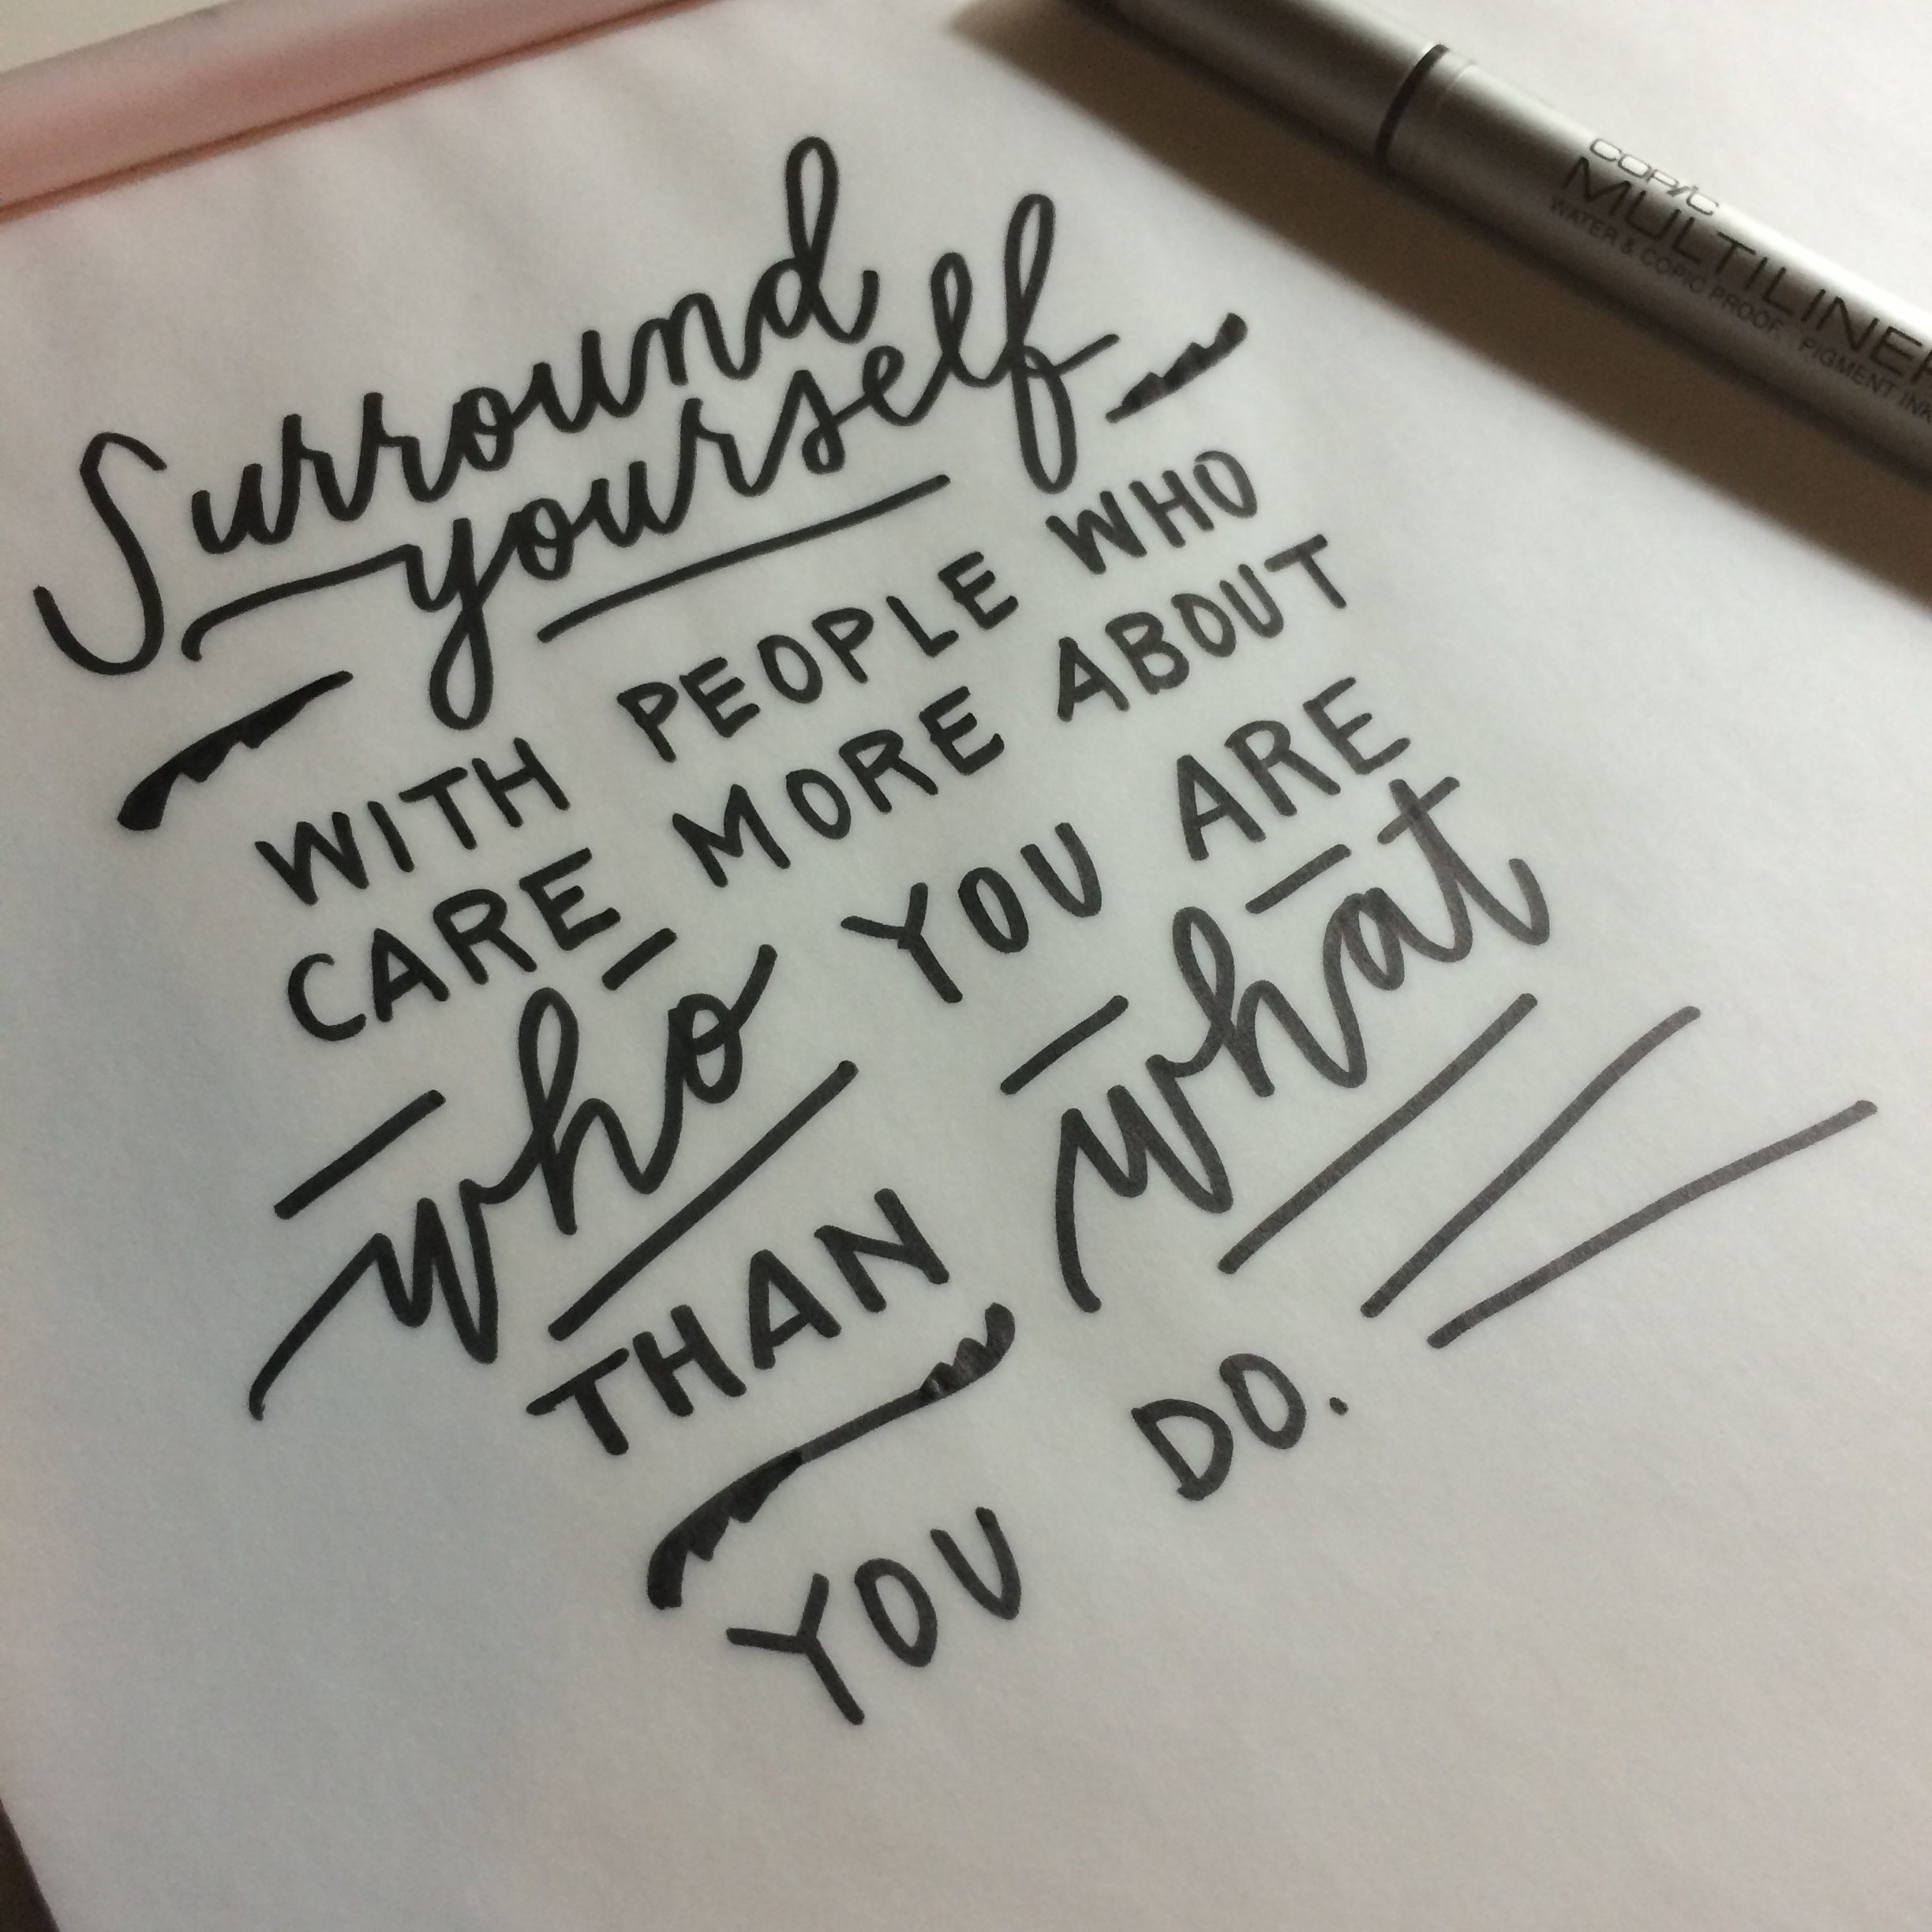 Surround
yourself
WITH PEOPLE WHO
CARE MORE ABOUT
who YOU ARE
THAN what
YOU DO.
COPIC
MULTILINER
WATER & COPIC PROOF · PIGMENT INK